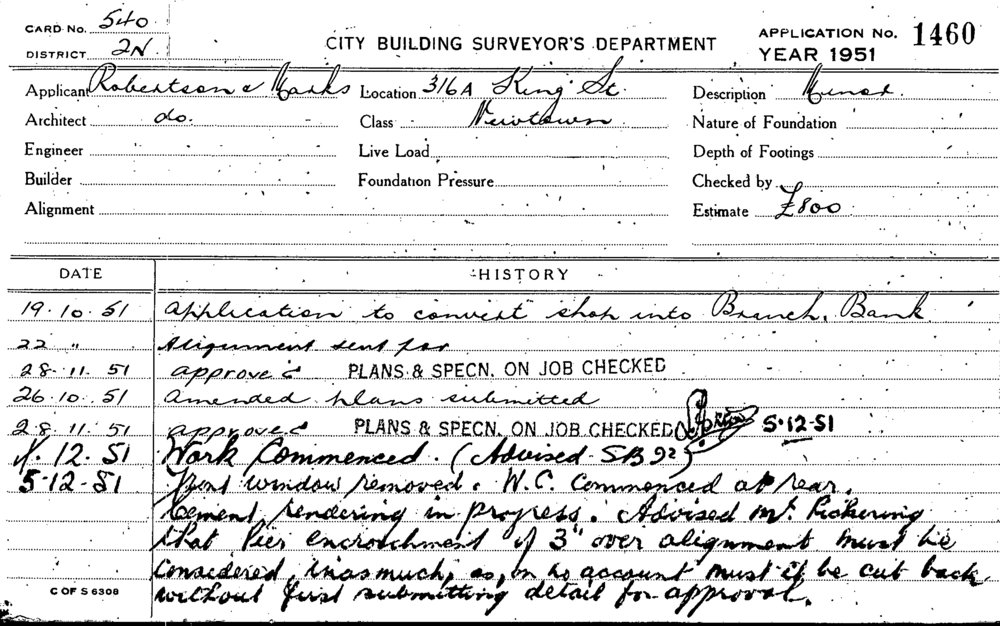 CARD No. 540
DISTRICT 2N
CITY BUILDING SURVEYOR'S DEPARTMENT
APPLICATION No. 1460
YEAR 1951
Applicant Robertson & Marks Location 316A King St. Description Minor.
Architect do. Class Newtown Nature of Foundation
Engineer Live Load Depth of Footings
Builder Foundation Pressure Checked by
Alignment Estimate £800
DATE HISTORY
19.10.51 Application to convert shop into Branch Bank
22 " Alignment sent for
28.11.51 approved PLANS & SPECN. ON JOB CHECKED
26.10.51 Amended plans submitted
28.11.51 approved PLANS & SPECN. ON JOB CHECKED 5.12.51
4.12.51 Work Commenced. (Advised SB92)
5.12.51 Front window removed. W.C. Commenced at rear.
Cement rendering in progress. Advised Mr. Pickering
that Pier encroachment of 3" over alignment must be
Considered, inasmuch, as, on no account must it be cut back
without first submitting detail for approval.
C OF S 6308